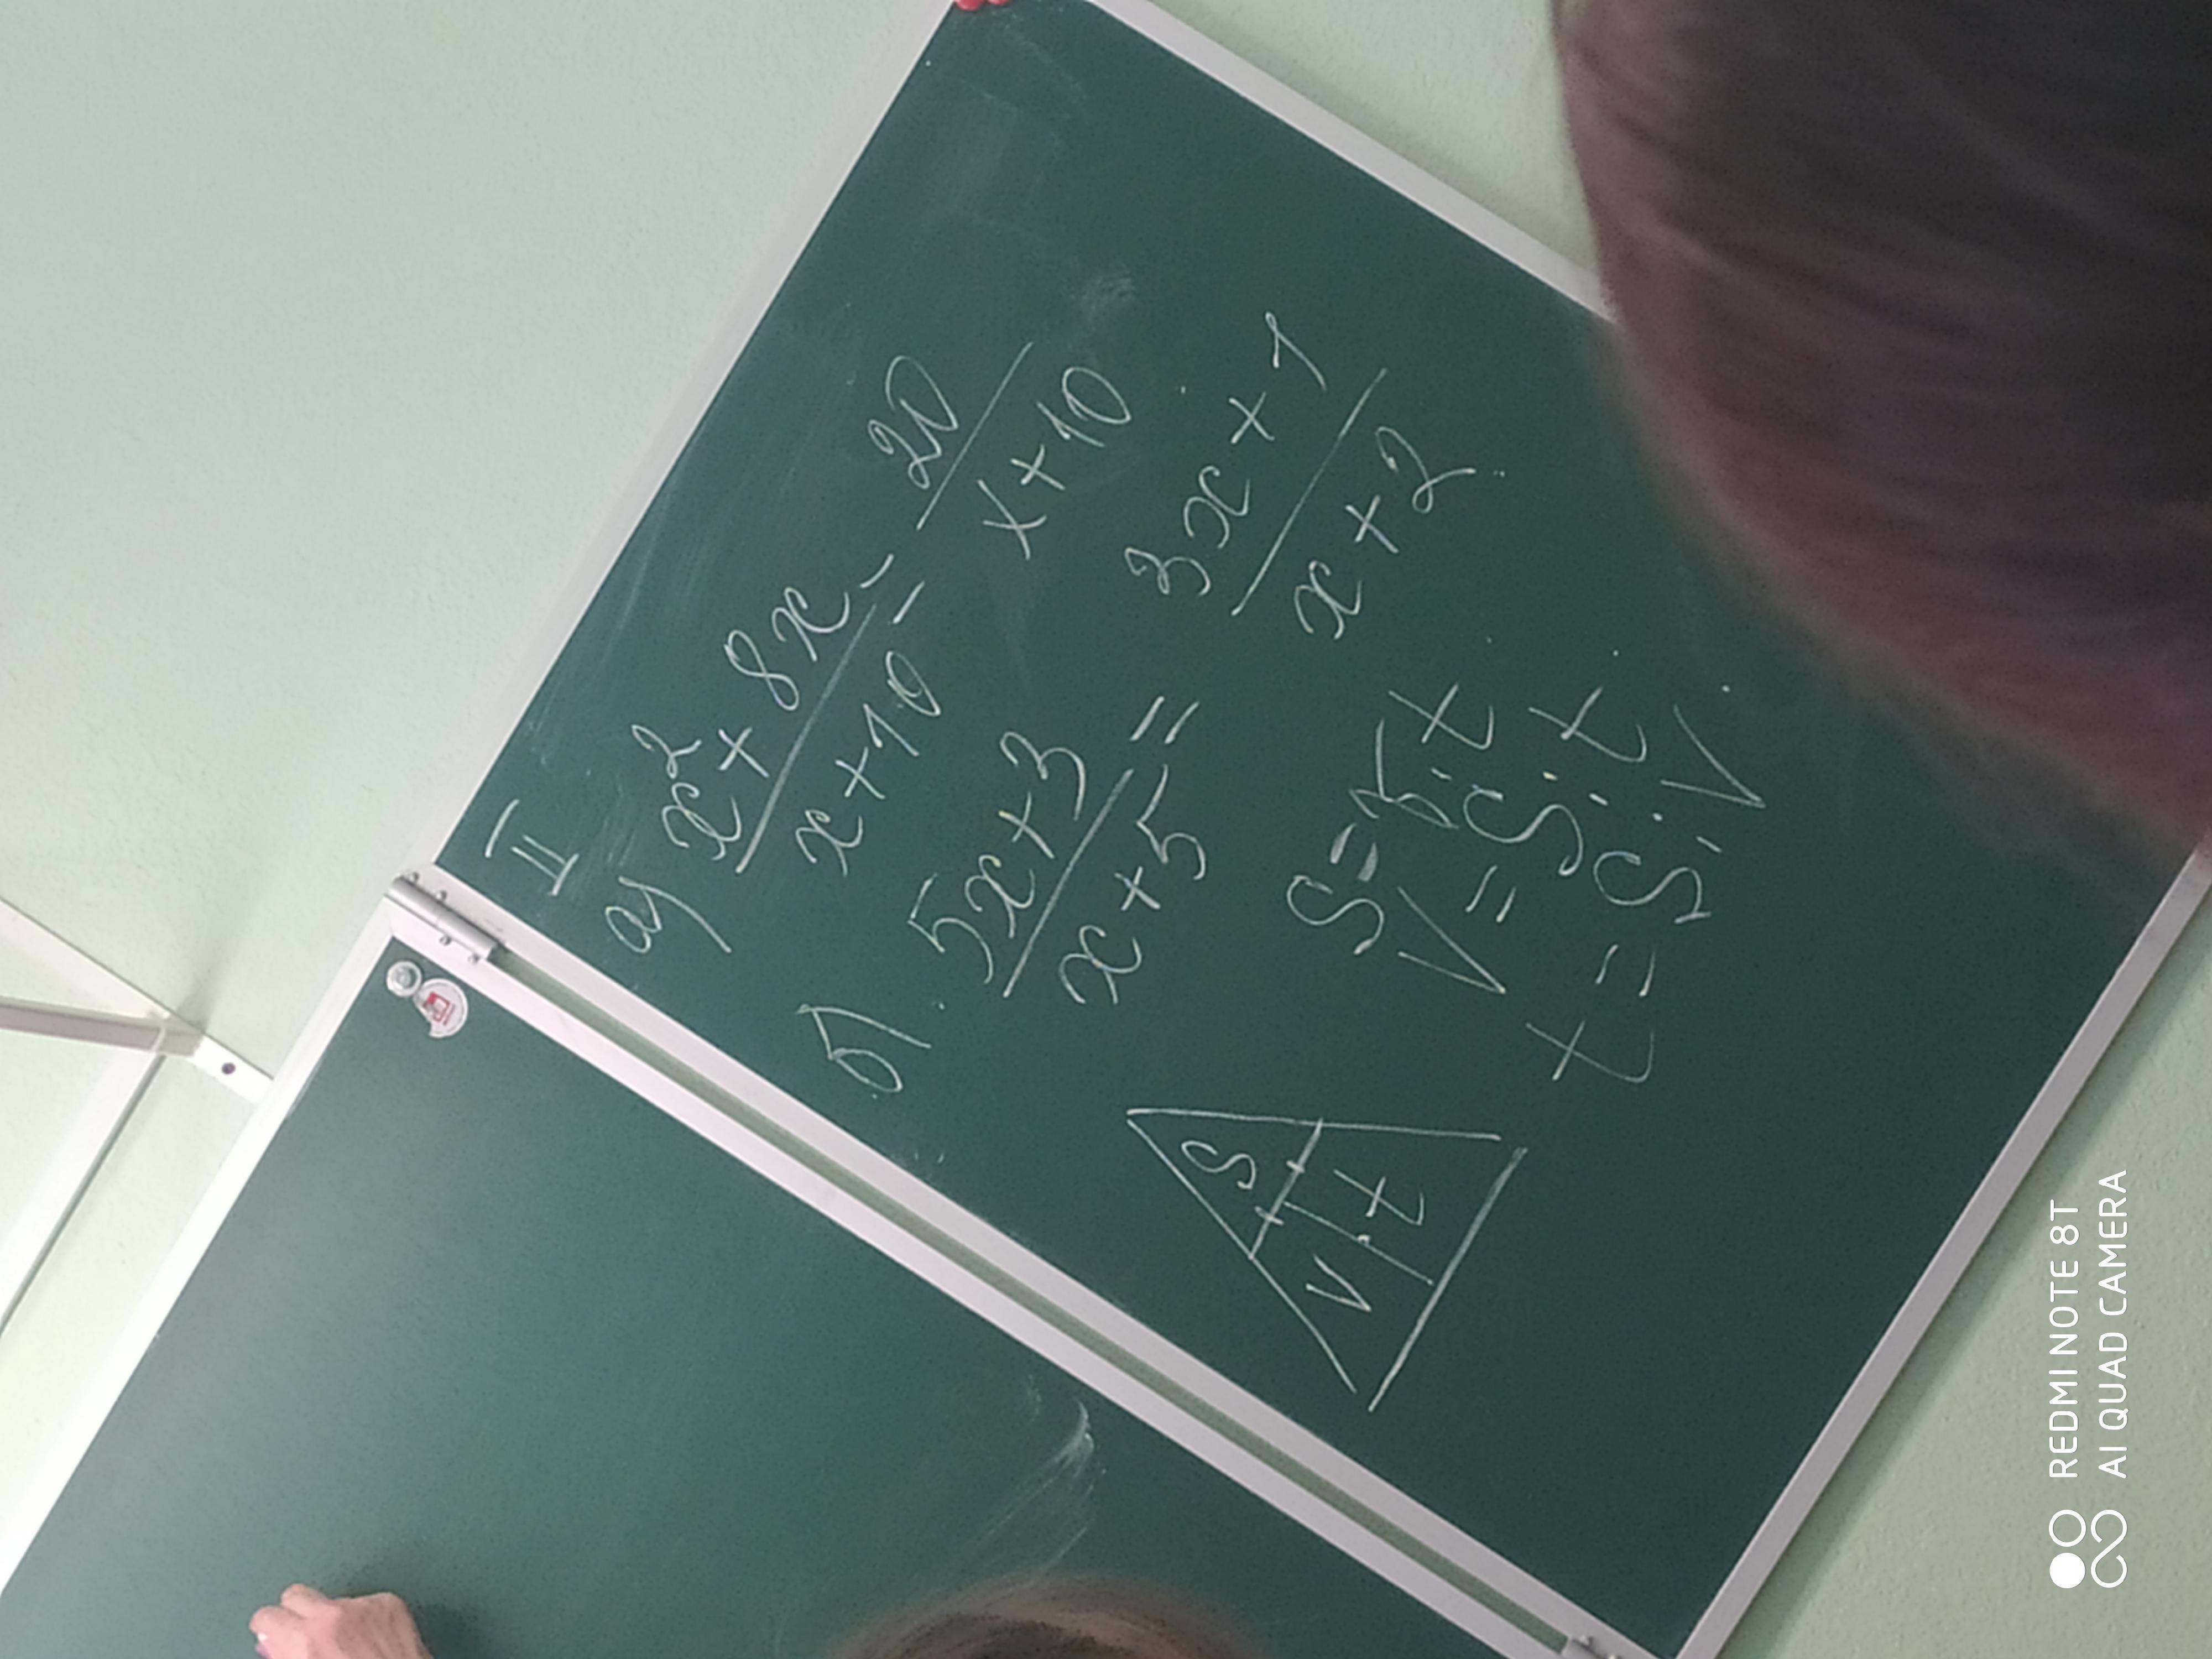 II
а) x²+8x / x+10 = 20 / x+10
б) 5x+3 / x+5 = 3x+1 / x+2
S=v·t
V=S:t
t=S:V
S
V·t
REDMI NOTE 8T
AI QUAD CAMERA